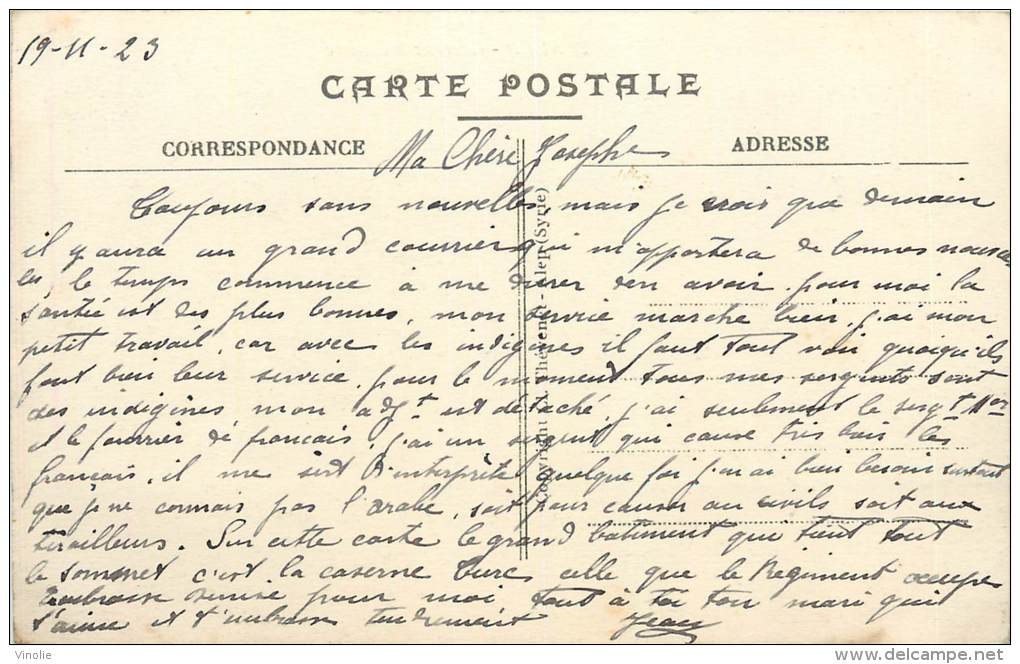 19-11-23
CARTE POSTALE
CORRESPONDANCE
ADRESSE
Ma Chère Josephe
Toujours sans nouvelles mais je crois que demain
il y aura un grand courrier qui m'apportera de bonnes nouvel
les, le temps commence à me durer d'en avoir. pour moi la
santée est des plus bonnes, mon service marche bien, j'ai mon
petit travail, car avec les indigènes il faut tout voir quoiqu'ils
font bien leur service. pour le moment tous mes sergents sont
des indigènes mon adjt est détaché, j'ai seulement le sergt Mor
et le fourrier de français. j'ai un sergent qui cause très bien les
français, il me sert d'interprète quelque foi j'en ai bien besoin surtout
que je ne connais pas l'arabe, soit pour causer au civils soit aux
tirailleurs. Sur cette carte le grand batiment que tient tout
le sommet c'est la caserne turc celle que le Régiment occupe
pour moi tout à toi ton mari qui
t'aime et t'embrasse tendrement Jean
Copyright V. Thévenet - Alep (Syrie)
Vinolie